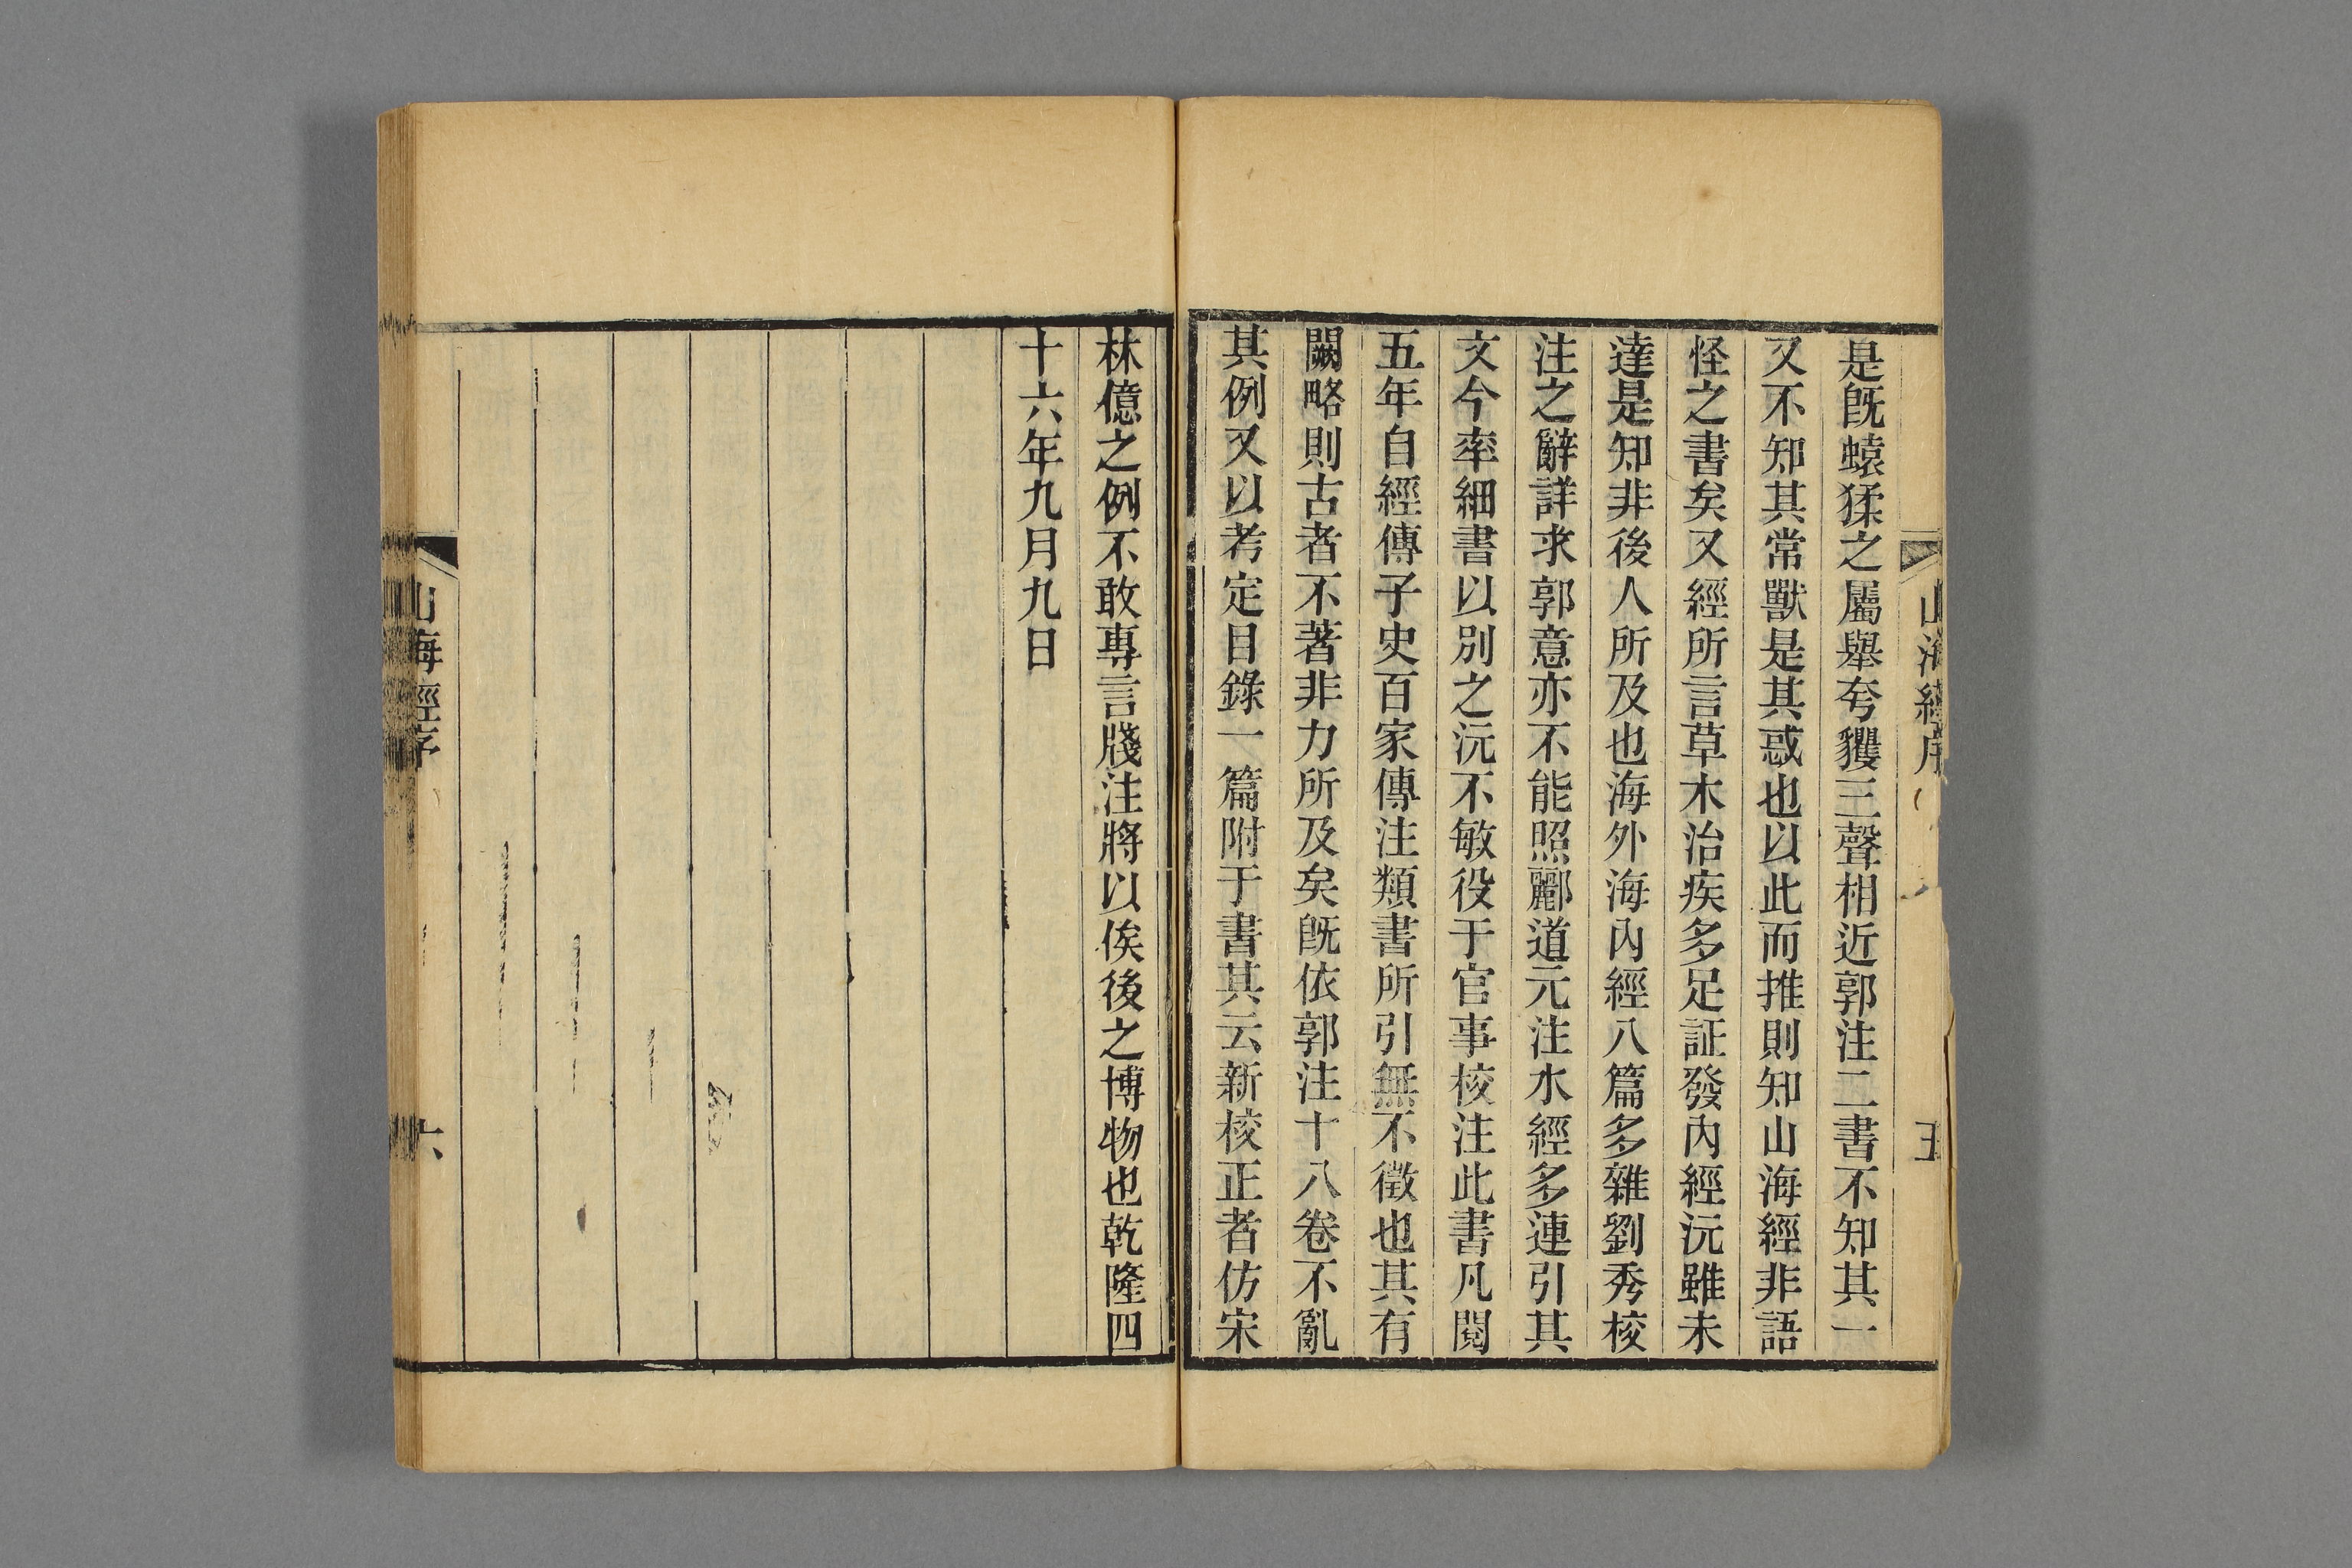 山海經序
五
是旣蝯猱之屬舉夸玃三聲相近郭注二書不知其一
又不知其常獸是其惑也以此而推則知山海經非語
怪之書矣又經所言草木治疾多足証發內經沅雖未
達是知非後人所及也海外海內經八篇多雜劉秀校
注之辭詳求郭意亦不能照酈道元注水經多連引其
文今率細書以別之沅不敏役于官事校注此書凡閱
五年自經傳子史百家傳注類書所引無不徵也其有
闕略則古者不著非力所及矣旣依郭注十八卷不亂
其例又以考定目錄一篇附于書其云新校正者仿宋
林億之例不敢專言牋注將以俟後之博物也乾隆四
十六年九月九日
山海經序
六